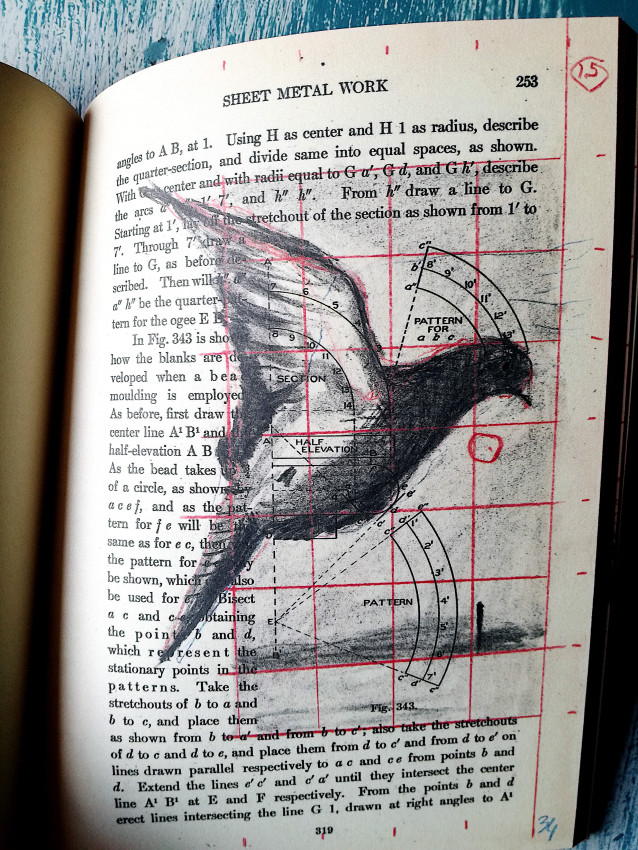 SHEET METAL WORK 253
15
angles to A B, at 1. Using H as center and H 1 as radius, describe
the quarter-section, and divide same into equal spaces, as shown.
With center and with radii equal to G a', G d, and G h', describe
the arcs 1' 7', and h" h". From h" draw a line to G.
Starting at 1', lay off the stretchout of the section as shown from 1' to
7'. Through 7' draw a
line to G, as before de-
scribed. Then will
a" h" be the quarter-
tern for the ogee E
In Fig. 343 is
how the blanks are de-
veloped when a bead
moulding is employed
As before, first draw the
center line A¹ B¹ and
half-elevation A B
As the bead takes up
of a circle, as shown by
a c e f, and as the pat-
tern for f e will be the
same as for e c, then
the pattern for
be shown, which also
be used for Bisect
a c and c e obtaining
the point b and d,
which represent the
stationary points in the
patterns. Take the
stretchouts of b to a and
b to c, and place them
as shown from b to a' and from b to c'; also take the stretchouts
of d to c and d to e, and place them from d to c' and from d to e' on
lines drawn parallel respectively to a c and c e from points b and
d. Extend the lines e' c' and c' a' until they intersect the center
line A¹ B¹ at E and F respectively. From the points b and d
erect lines intersecting the line G 1, drawn at right angles to A¹
319
34
A'
7 6 5
8 9 10 11
12
13
14
SECTION
HALF
ELEVATION
c"
b' 8'
a"
9'
10'
11'
12'
13'
PATTERN
FOR
a b c
1'
2'
3'
4'
5'
6'
7'
PATTERN
E
c"
d
c
Fig. 343.